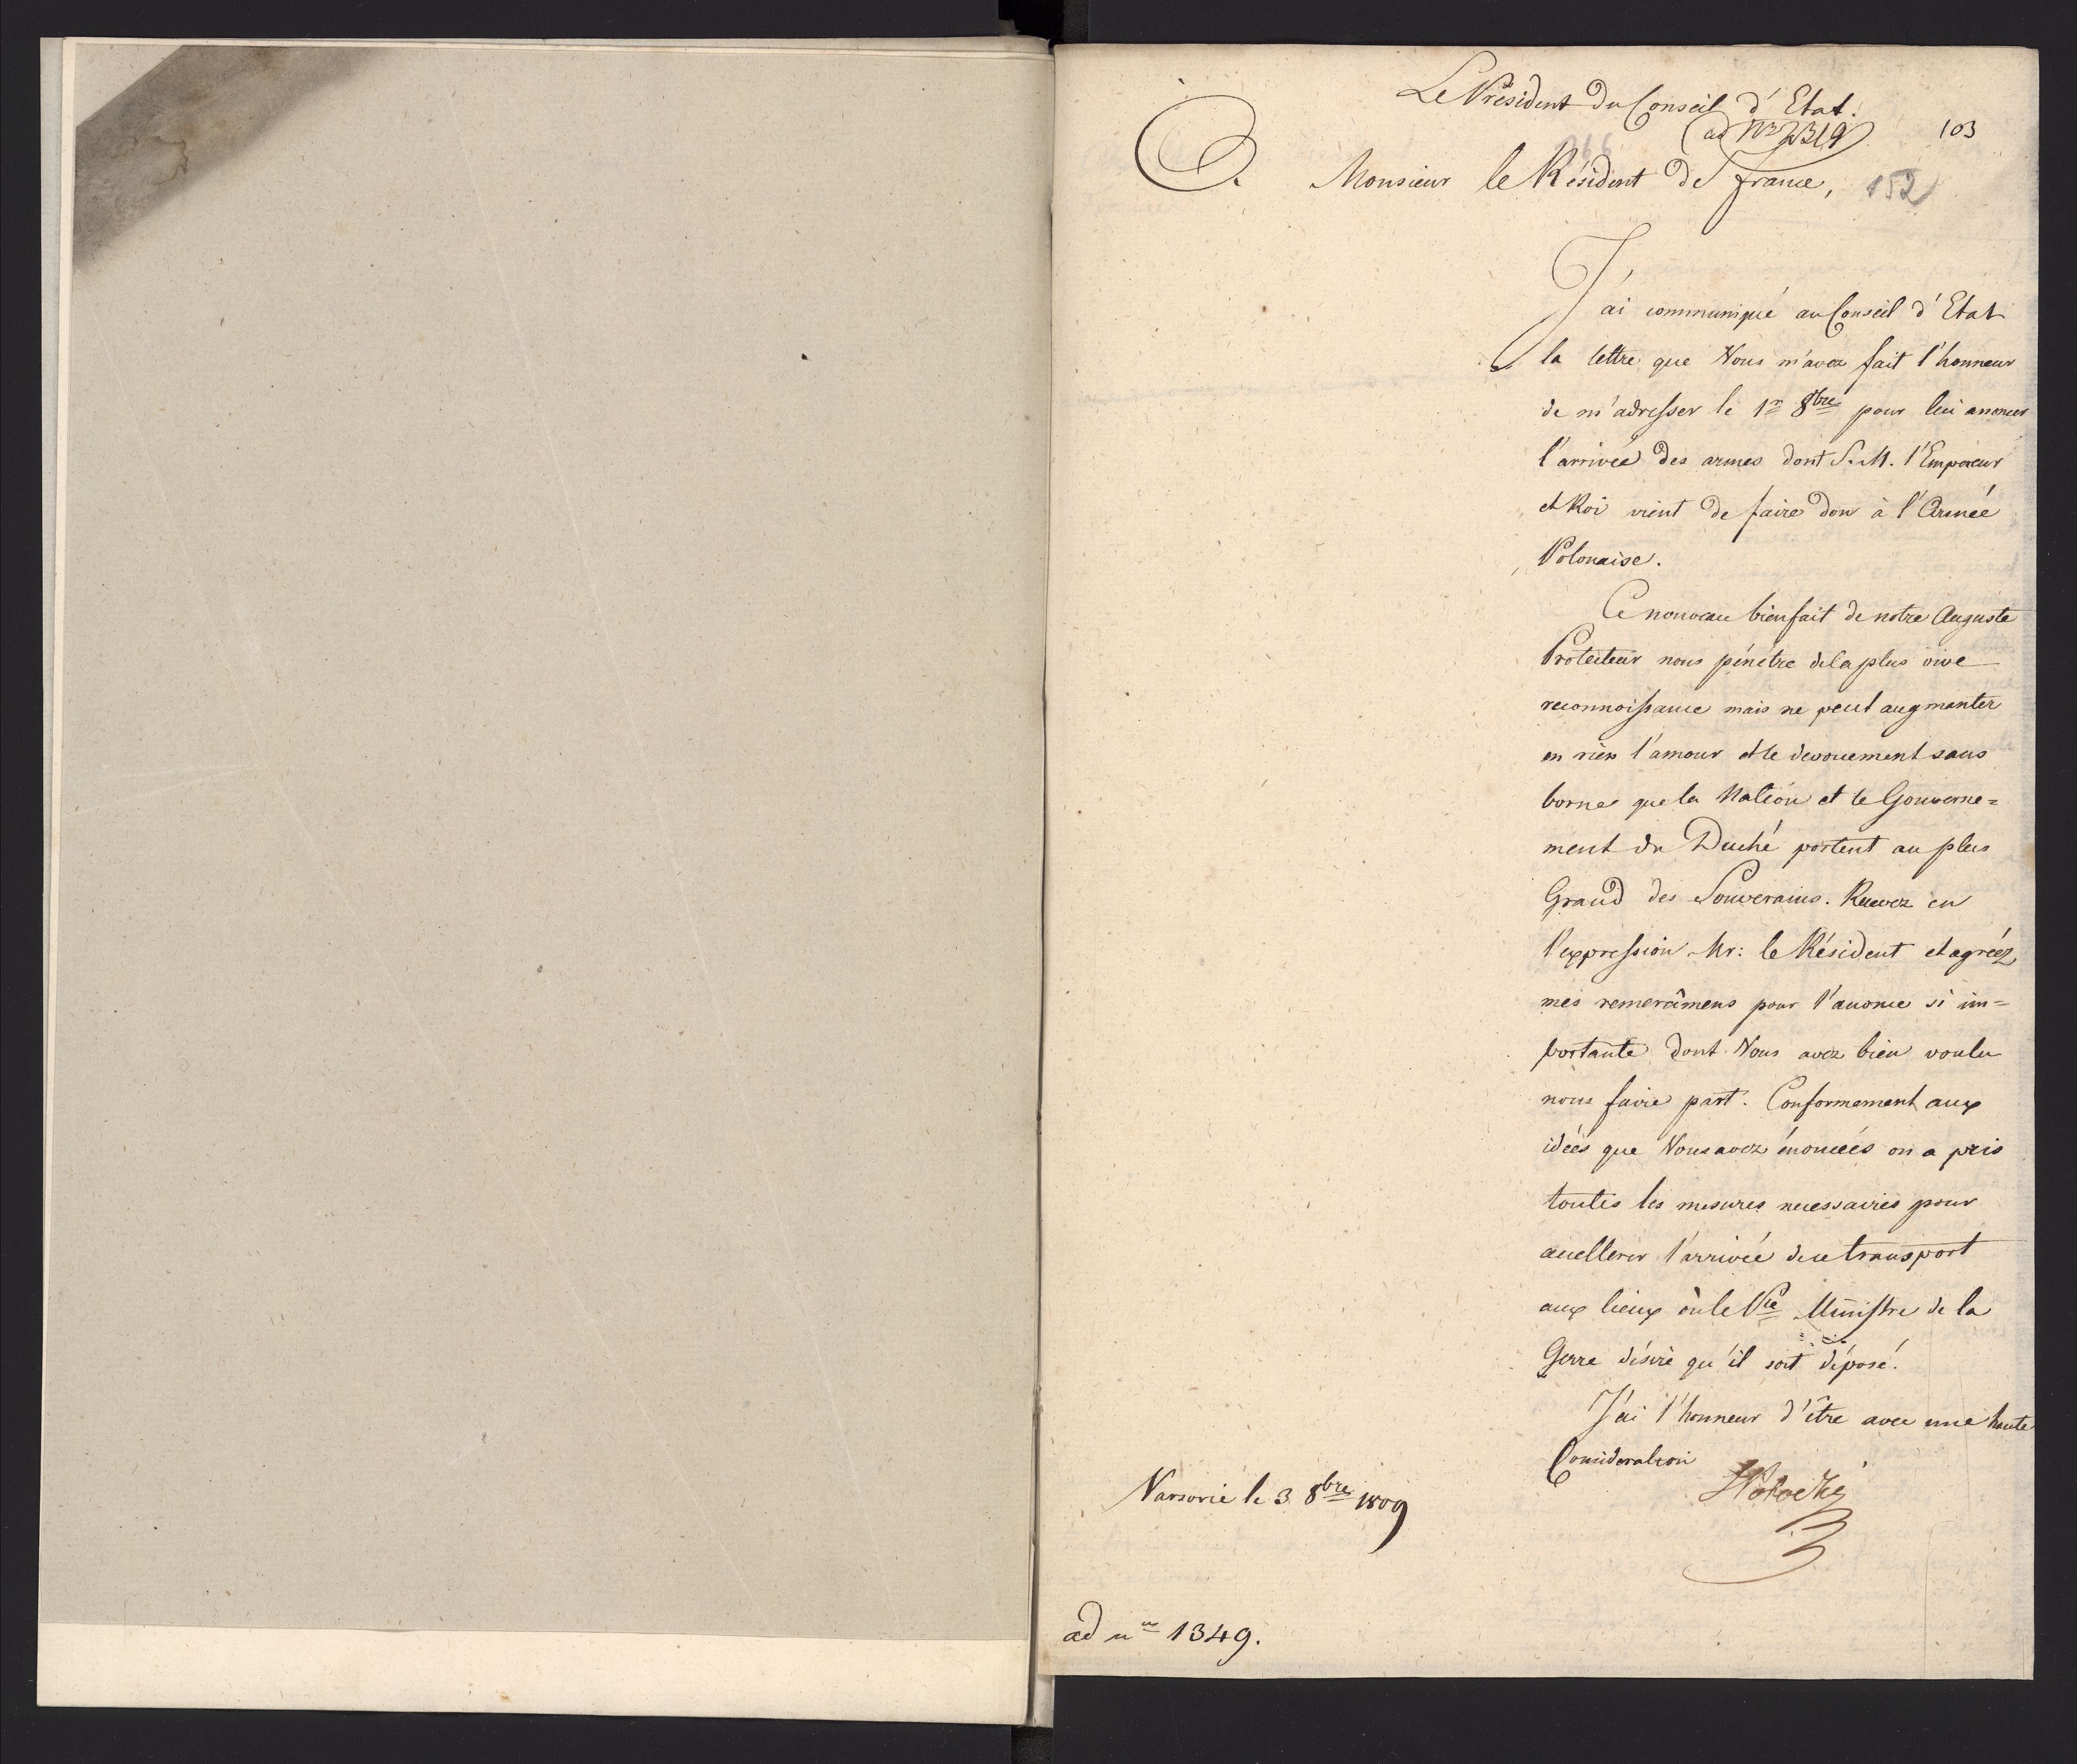 Le Président du Conseil d'Etat.
103
A Monsieur le Résident de france,
152
J'ai communiqué au Conseil d'Etat
la lettre que Vous m'avez fait l'honneur
de m'adresser le 1r 8bre pour lui anoncer
l'arrivée des armes dont S. M. l'Empereur
et Roi vient de faire don à l'Armée
Polonaise.
Ce nouveau bienfait de notre Auguste
Protecteur nous pénétre de la plus vive
reconnoissance mais ne peut augmanter
en rien l'amour et le devouement sans
bornes que la Nation et le Gouverne=
ment du Duché portent au plus
Grand des Souverains. Recevez en
l'expression Mr: le Résident et agréez
mes remercîmens pour l'anonce si im=
portante dont Vous avez bien voulu
nous faire part. Conformement aux
idées que Vous avez énoncées on a pris
toutes les mesures necessaires pour
accellerer l'arrivée de ce transport
aux lieux où le Vce Ministre de la
Gerre désire qu'il soit déposé.
J'ai l'honneur d'être avec une haute
Consideration
Varsovie le 3 8bre 1809
SPotocki
ad num 1349.